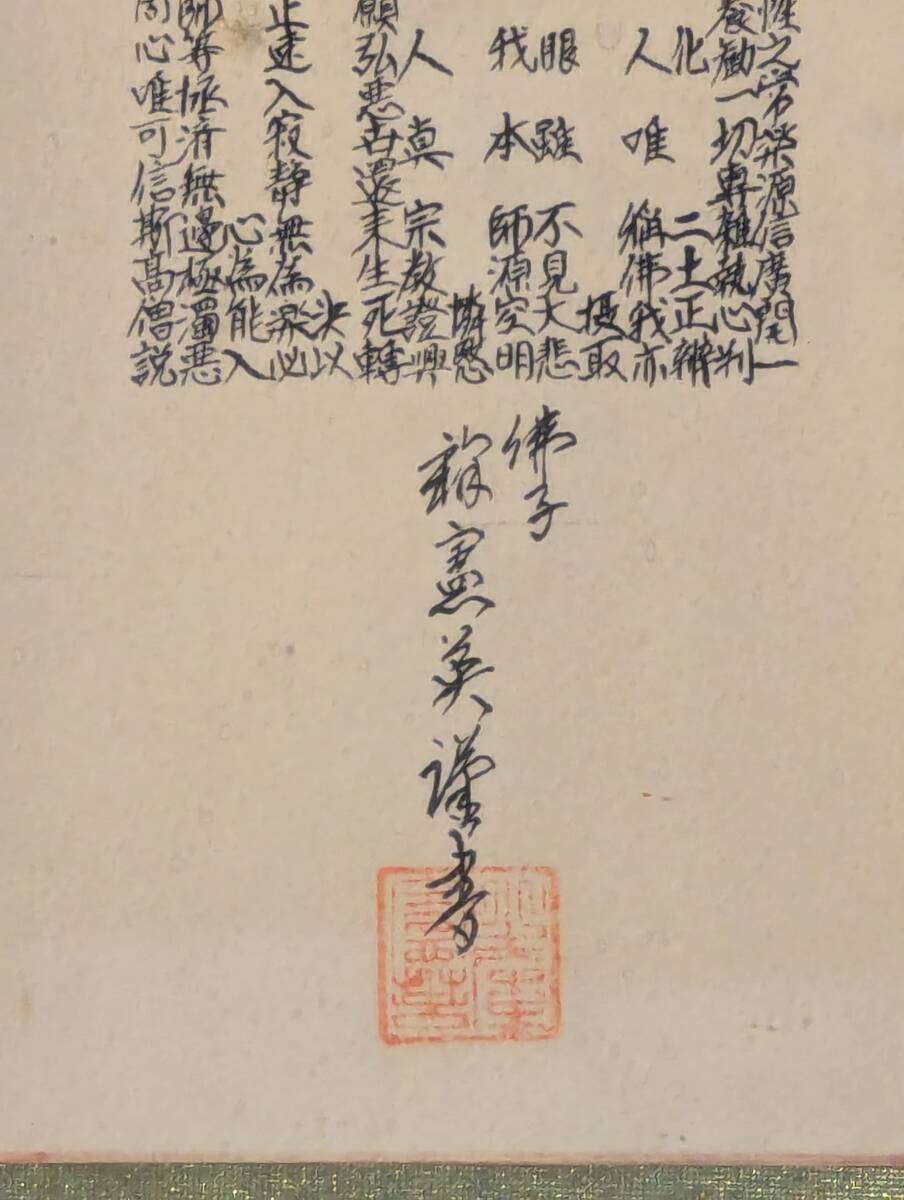 性之常樂源信廣開一
養勸一切專雜執心判
化二土正辨
人唯稱佛我亦
攝取
眼雖不見大悲
我本師源空明
憐愍
人真宗教證興
願弘惡世還来生死轉
決以
止速入寂静無為樂必
心為能入
師等拯濟無邊極濁惡
同心唯可信斯高僧説
佛子
釋憲英謹書